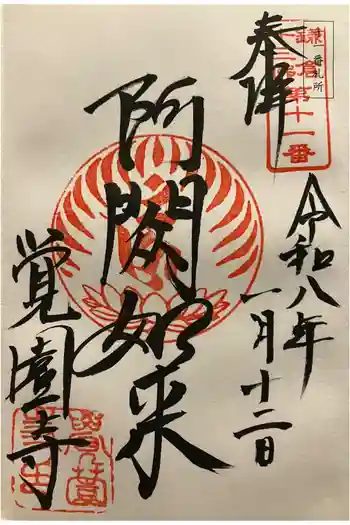 奉拝
鎌倉
十三佛第十一番
令和八年
一月十二日
阿閦如来
覚園寺